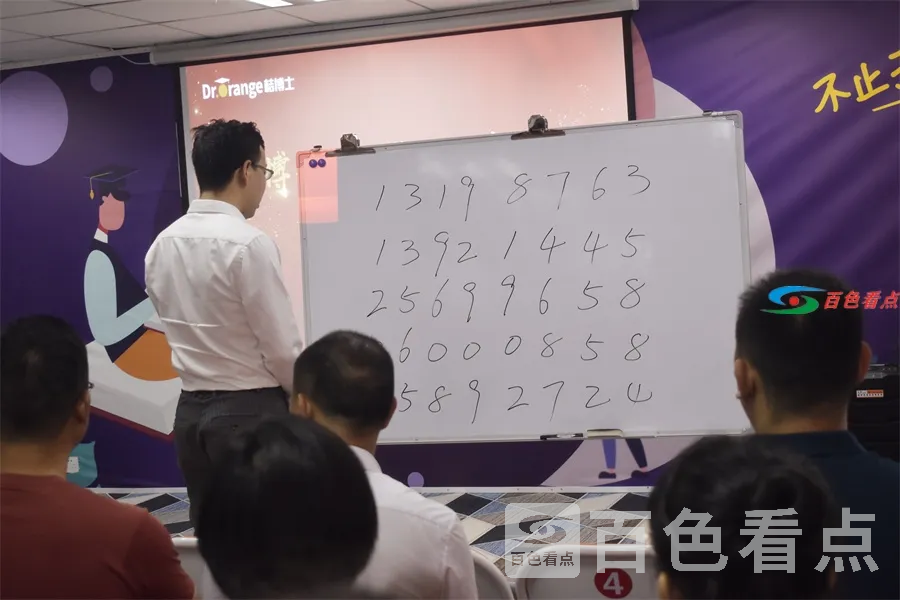 Dr.Orange 桔博士
不止
博
1319 8763
1392 1445
2569 9658
6000858
5892724
百色看点
百色看点
百色看点
4